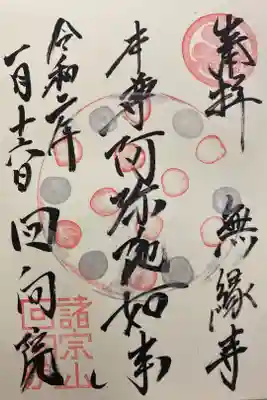 奉拝
無縁寺
本尊阿弥陀如来
令和二年
一月十六日
回向院
諸宗山